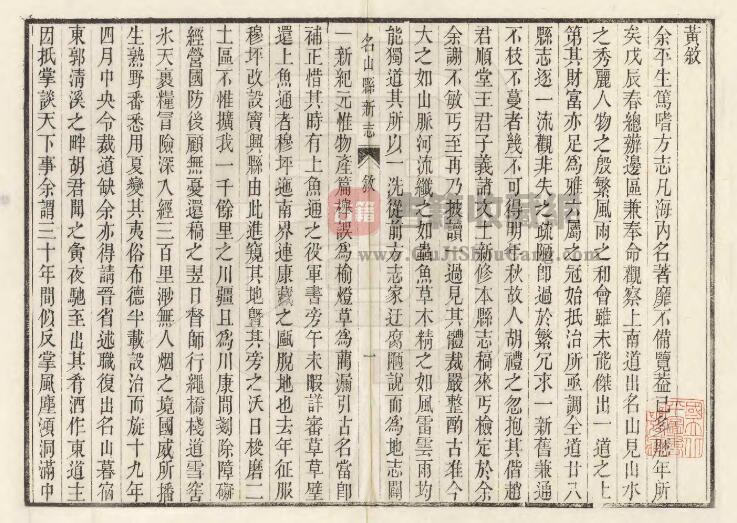 黃敘
余平生篤嗜方志凡海内名著靡不備覽蓋已多歷年所
矣戊辰春總辦邊區兼奉命觀察上南道出名山見山水
之秀麗人物之殷繁風雨之和會雖未能傑出一道之上
第其財富亦足為雅六屬之冠始抵治所亟調全道廿八
縣志逐一流觀非失之疏陋即過於繁冗求一新舊兼通
不枝不蔓者幾不可得明年秋故人胡禮之忽抱其偕趙
君順堂王君子義諸文士新修本縣志稿來丐檢定於余
余謝不敏丐至再乃披讀一過見其體裁嚴整酌古准今
大之如山脈河流纖之如蟲魚草木精之如風雷雲雨均
能獨道其所以一洗從前方志家迂腐陋說而為地志闢
名山縣新志 敘 一
一新紀元惟物產篇據誤為榆燈草為藺漏引古名當即
補正惜其時有上魚通之役軍書旁午未暇詳審草草壁
還上魚通者穆坪迤南界連康藏之甌脫地也去年征服
穆坪改設寶興縣由此進窺其地暨其旁之沃日梭磨二
土區不惟擴我一千餘里之川疆且為川康間剗除障礙
經營國防後顧無憂還稿之翌日督師行繩橋棧道雪窖
氷天裹糧冒險深入經三百里渺無人烟之境國威所播
生熟野番悉用夏變其夷俗布德半載設治而旋十九年
四月中央令裁道缺余亦得請晉省述職復出名山暮宿
東郭清溪之畔胡君聞之夤夜馳至出其肴酒作東道主
因抵掌談天下事余謂三十年間似反掌風塵澒洞滿中
书籍收藏网
www.GuJiShuCang.com
古籍